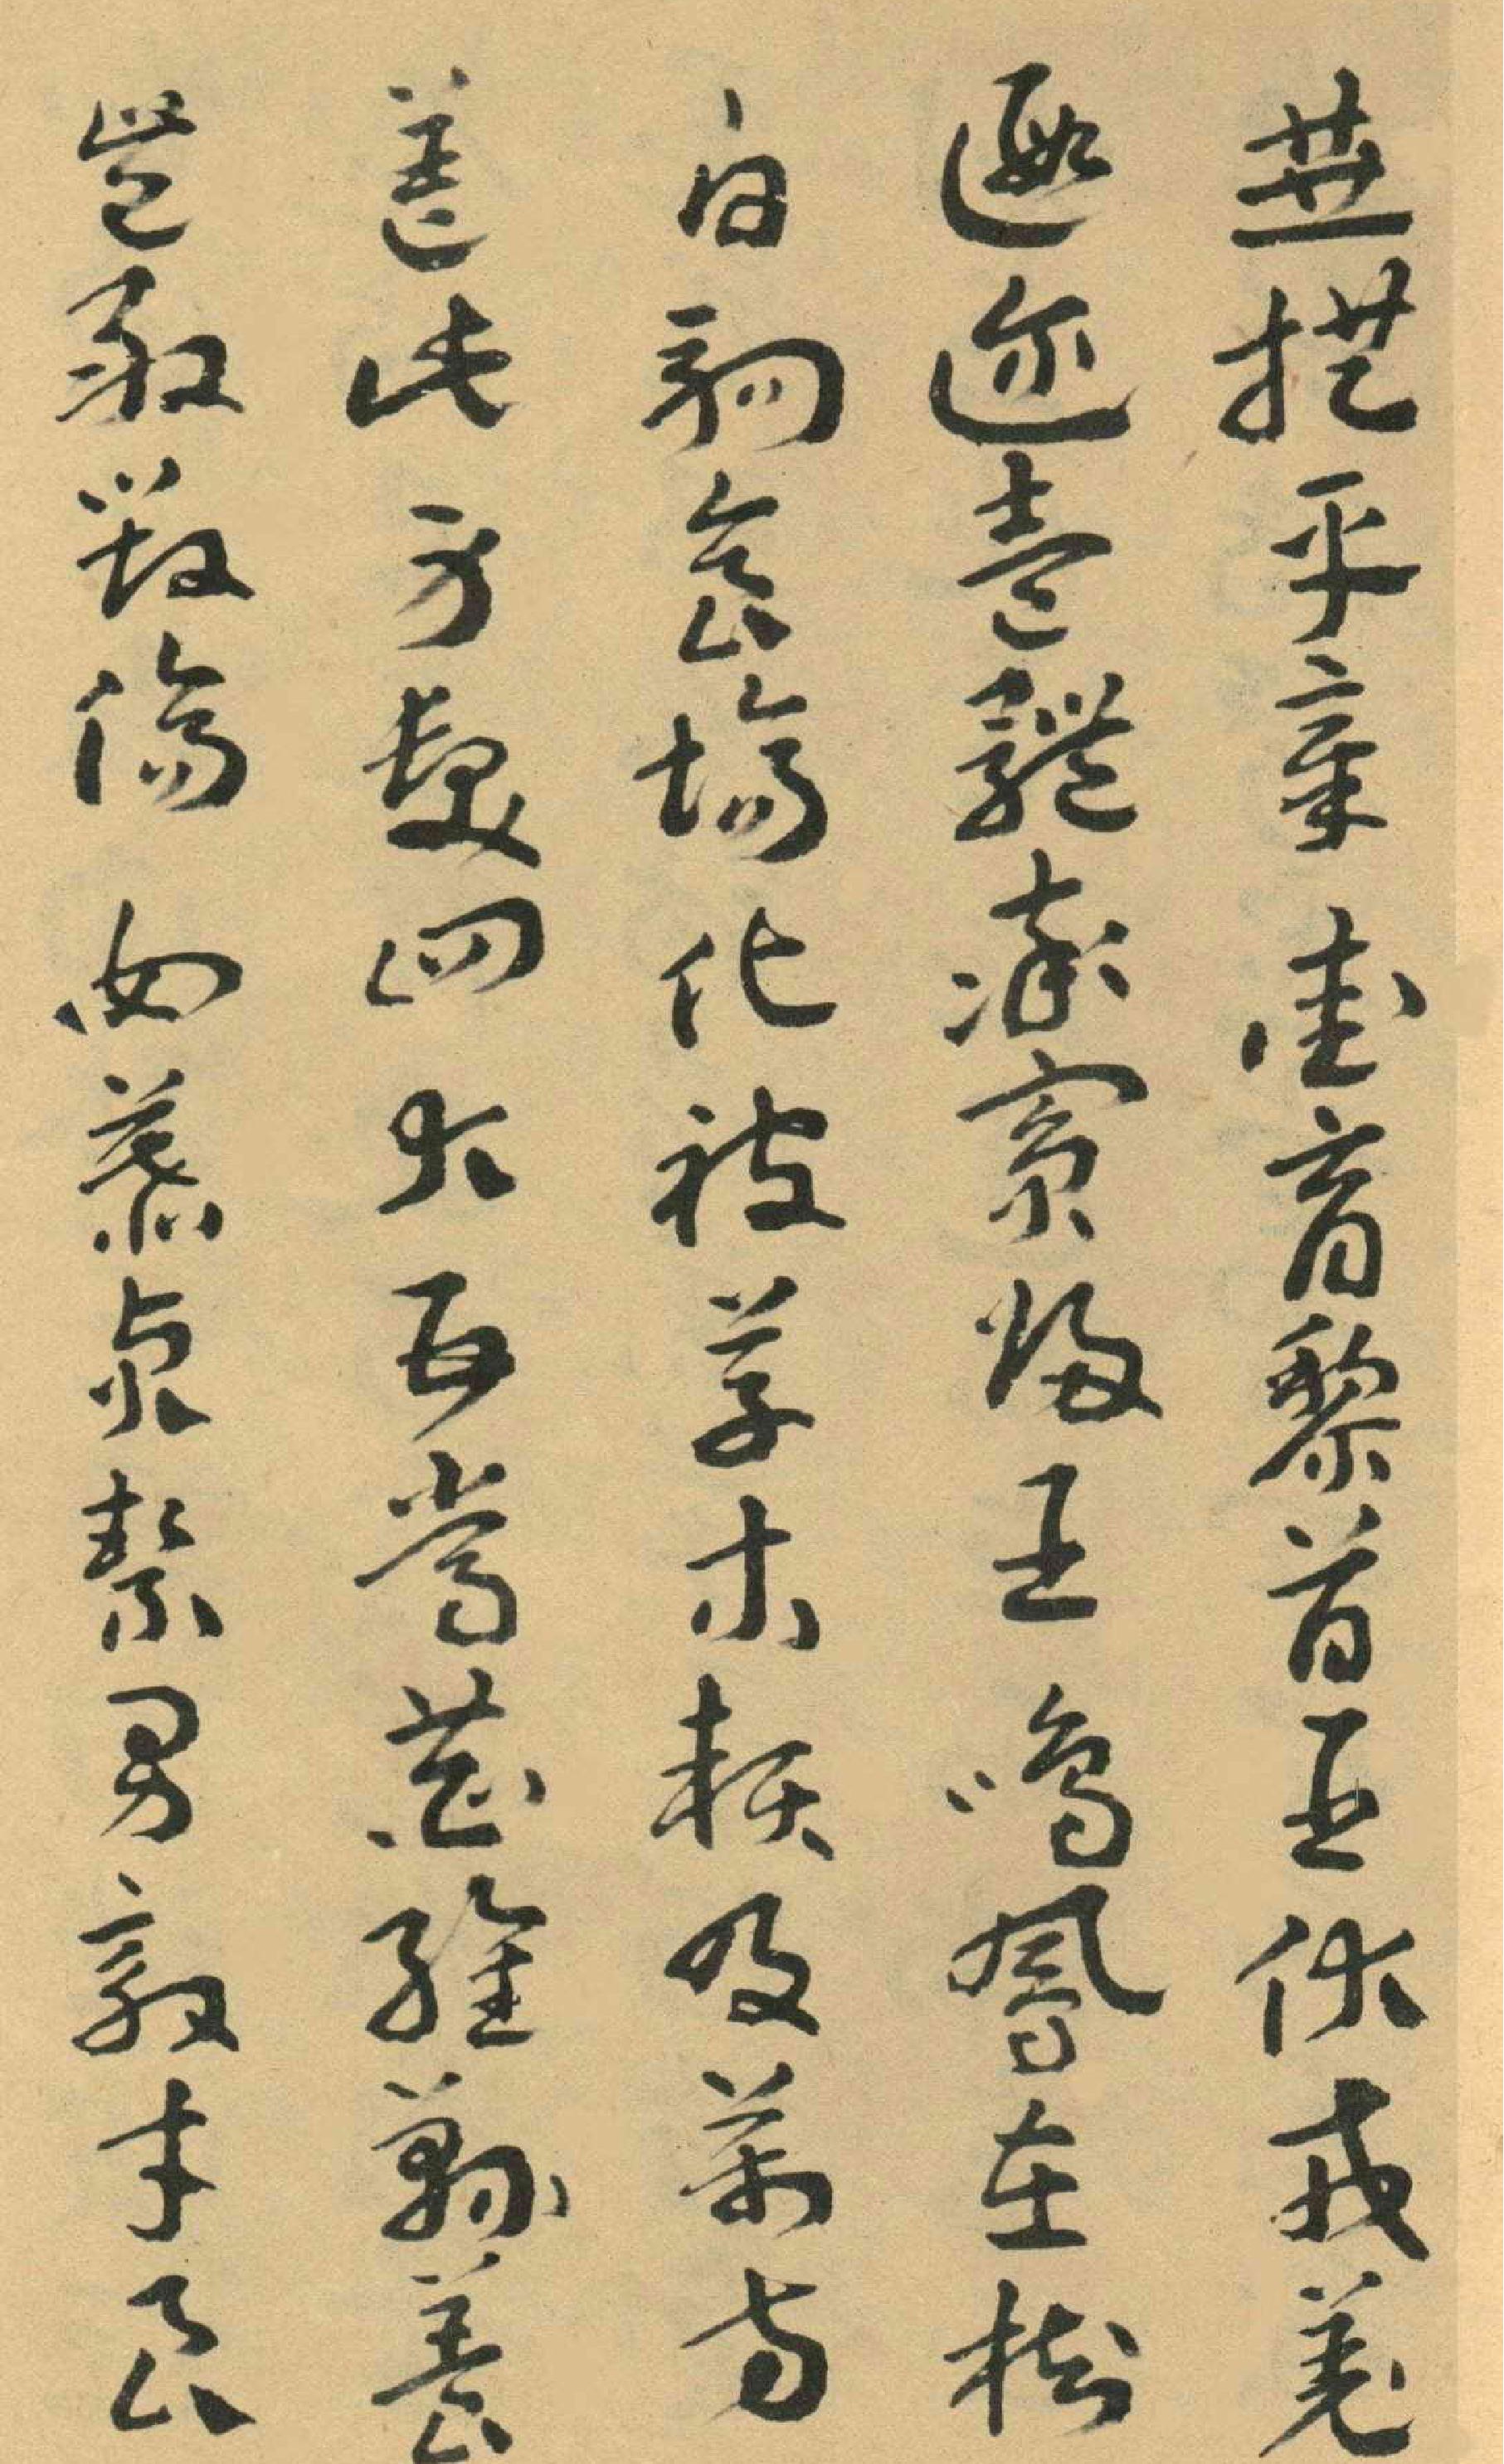 垂拱平章愛育黎首臣伏戎羌
遐迩壹體率賓歸王鳴鳳在樹
白駒食場化被草木賴及萬方
蓋此身髮四大五常恭惟鞠養
豈敢毀傷女慕貞絜男效才良